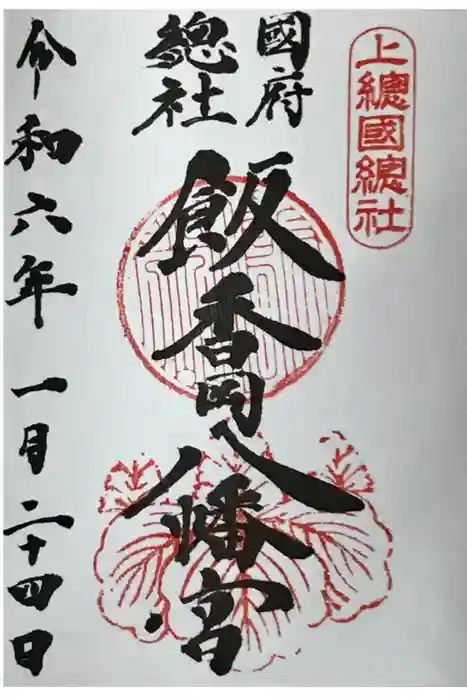 上總國總社
國府
總社
飯香岡八幡宮
令和六年 一月二十四日